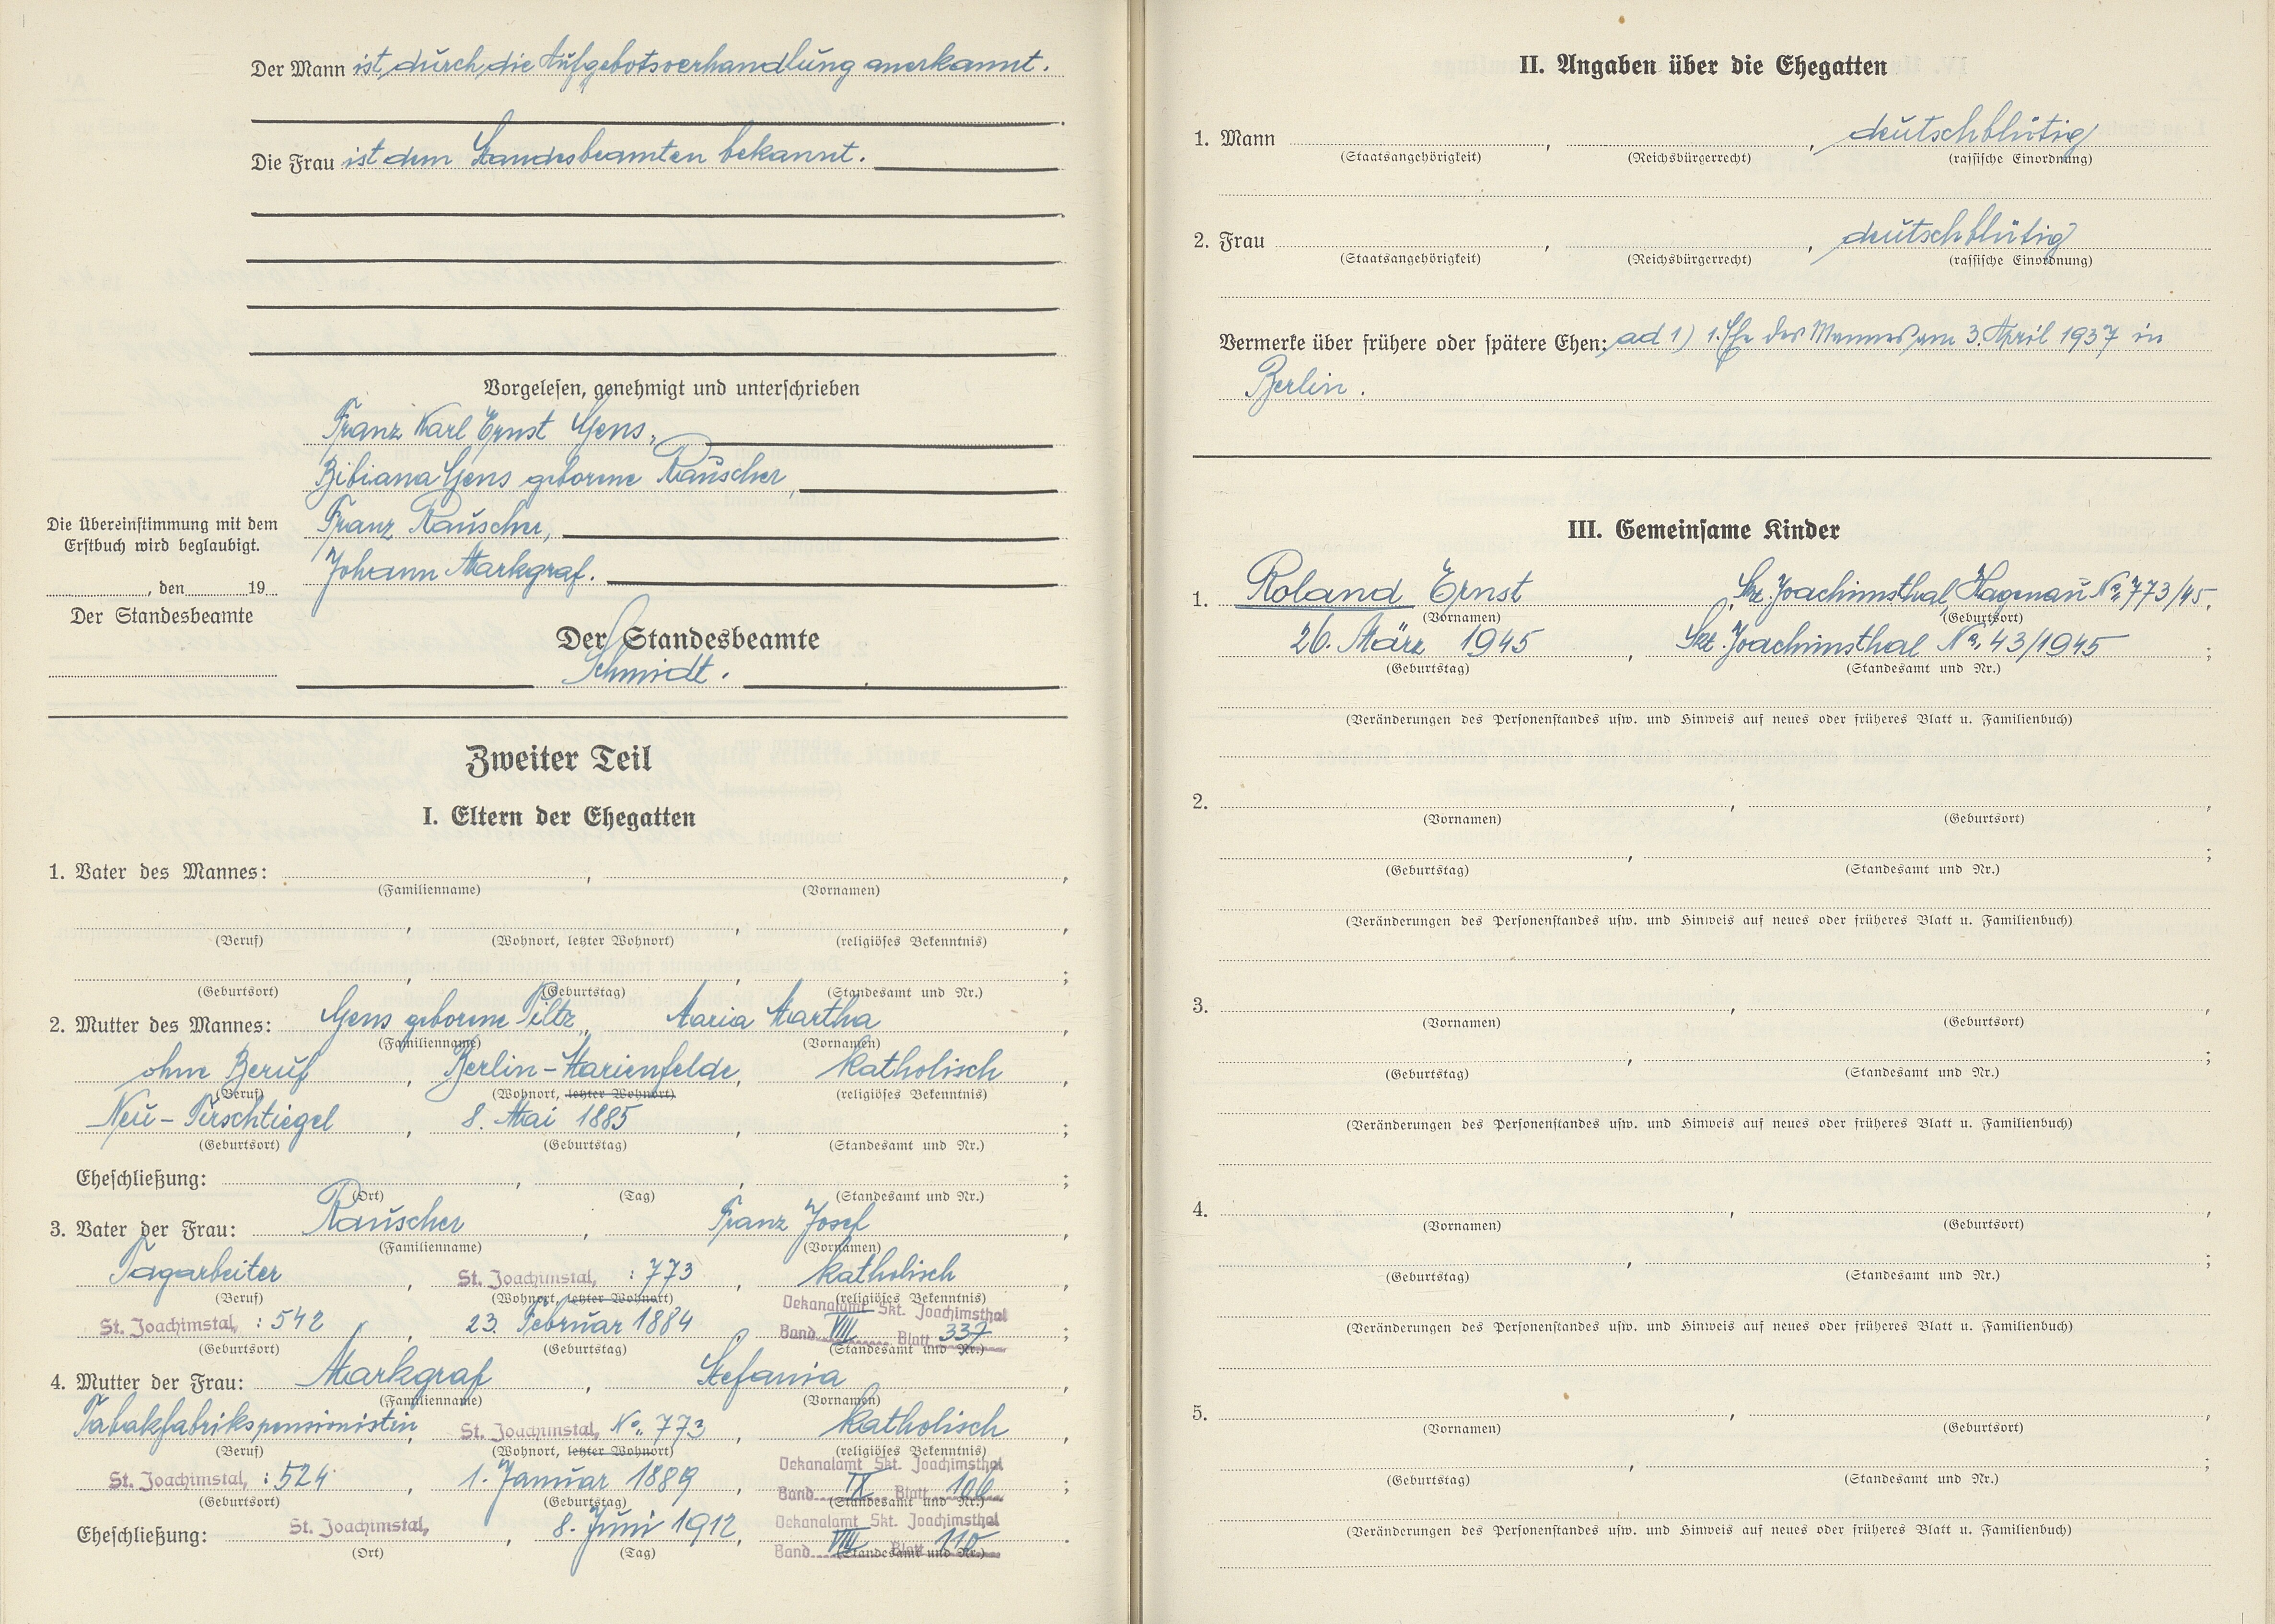 Der Mann ist durch die Aufgebotsverhandlung anerkannt.
Die Frau ist dem Standesbeamten bekannt.
Vorgelesen, genehmigt und unterschrieben
Franz Karl Ernst Gens,
Bibiana Gens geborene Rauscher,
Franz Rauscher,
Johann Markgraf.
Die Übereinstimmung mit dem
Erstbuch wird beglaubigt.
, den 19
Der Standesbeamte
Der Standesbeamte
Schmidt.
Zweiter Teil
I. Eltern der Ehegatten
1. Vater des Mannes: , ,
(Familienname) (Vornamen)
, , ,
(Beruf) (Wohnort, letzter Wohnort) (religiöses Bekenntnis)
, , ;
(Geburtsort) (Geburtstag) (Standesamt und Nr.)
2. Mutter des Mannes: Gens geborene Piltz, Maria Martha,
(Familienname) (Vornamen)
ohne Beruf, Berlin-Marienfelde, katholisch,
(Beruf) (Wohnort, letzter Wohnort) (religiöses Bekenntnis)
Neu-Tirschtiegel, 8. Mai 1885, ;
(Geburtsort) (Geburtstag) (Standesamt und Nr.)
Eheschließung: , , ;
(Ort) (Tag) (Standesamt und Nr.)
3. Vater der Frau: Rauscher, Franz Josef,
(Familienname) (Vornamen)
Tagarbeiter, St. Joachimstal, : 773, katholisch,
(Beruf) (Wohnort, letzter Wohnort) (religiöses Bekenntnis)
St. Joachimstal, : 542, 23. Februar 1884, Dekanalamt Skt. Joachimsthal
Band VIII Blatt 337;
(Geburtsort) (Geburtstag) (Standesamt und Nr.)
4. Mutter der Frau: Markgraf, Stefania,
(Familienname) (Vornamen)
Tabakfabrikspensionistin, St. Joachimstal, No. 773, katholisch,
(Beruf) (Wohnort, letzter Wohnort) (religiöses Bekenntnis)
St. Joachimstal, : 524, 1. Januar 1889, Dekanalamt Skt. Joachimsthal
Band IX Blatt 106;
(Geburtsort) (Geburtstag) (Standesamt und Nr.)
Eheschließung: St. Joachimstal, , 8. Juni 1912, Dekanalamt Skt. Joachimsthal
Band VIII Blatt 110.
(Ort) (Tag) (Standesamt und Nr.)
II. Angaben über die Ehegatten
1. Mann , , deutschblütig
(Staatsangehörigkeit) (Reichsbürgerrecht) (rassische Einordnung)
2. Frau , , deutschblütig
(Staatsangehörigkeit) (Reichsbürgerrecht) (rassische Einordnung)
Vermerke über frühere oder spätere Ehen: ad 1) 1. Ehe des Mannes am 3. April 1937 in
Berlin.
III. Gemeinsame Kinder
1. Roland Ernst, Skt. Joachimsthal, Hagenau No. 773/45,
(Vornamen) (Geburtsort)
26. März 1945, Skt. Joachimsthal No. 43/1945;
(Geburtstag) (Standesamt und Nr.)
(Veränderungen des Personenstandes usw. und Hinweis auf neues oder früheres Blatt u. Familienbuch)
2. , ,
(Vornamen) (Geburtsort)
, ;
(Geburtstag) (Standesamt und Nr.)
(Veränderungen des Personenstandes usw. und Hinweis auf neues oder früheres Blatt u. Familienbuch)
3. , ,
(Vornamen) (Geburtsort)
, ;
(Geburtstag) (Standesamt und Nr.)
(Veränderungen des Personenstandes usw. und Hinweis auf neues oder früheres Blatt u. Familienbuch)
4. , ,
(Vornamen) (Geburtsort)
, ;
(Geburtstag) (Standesamt und Nr.)
(Veränderungen des Personenstandes usw. und Hinweis auf neues oder früheres Blatt u. Familienbuch)
5. , ,
(Vornamen) (Geburtsort)
, ;
(Geburtstag) (Standesamt und Nr.)
(Veränderungen des Personenstandes usw. und Hinweis auf neues oder früheres Blatt u. Familienbuch)